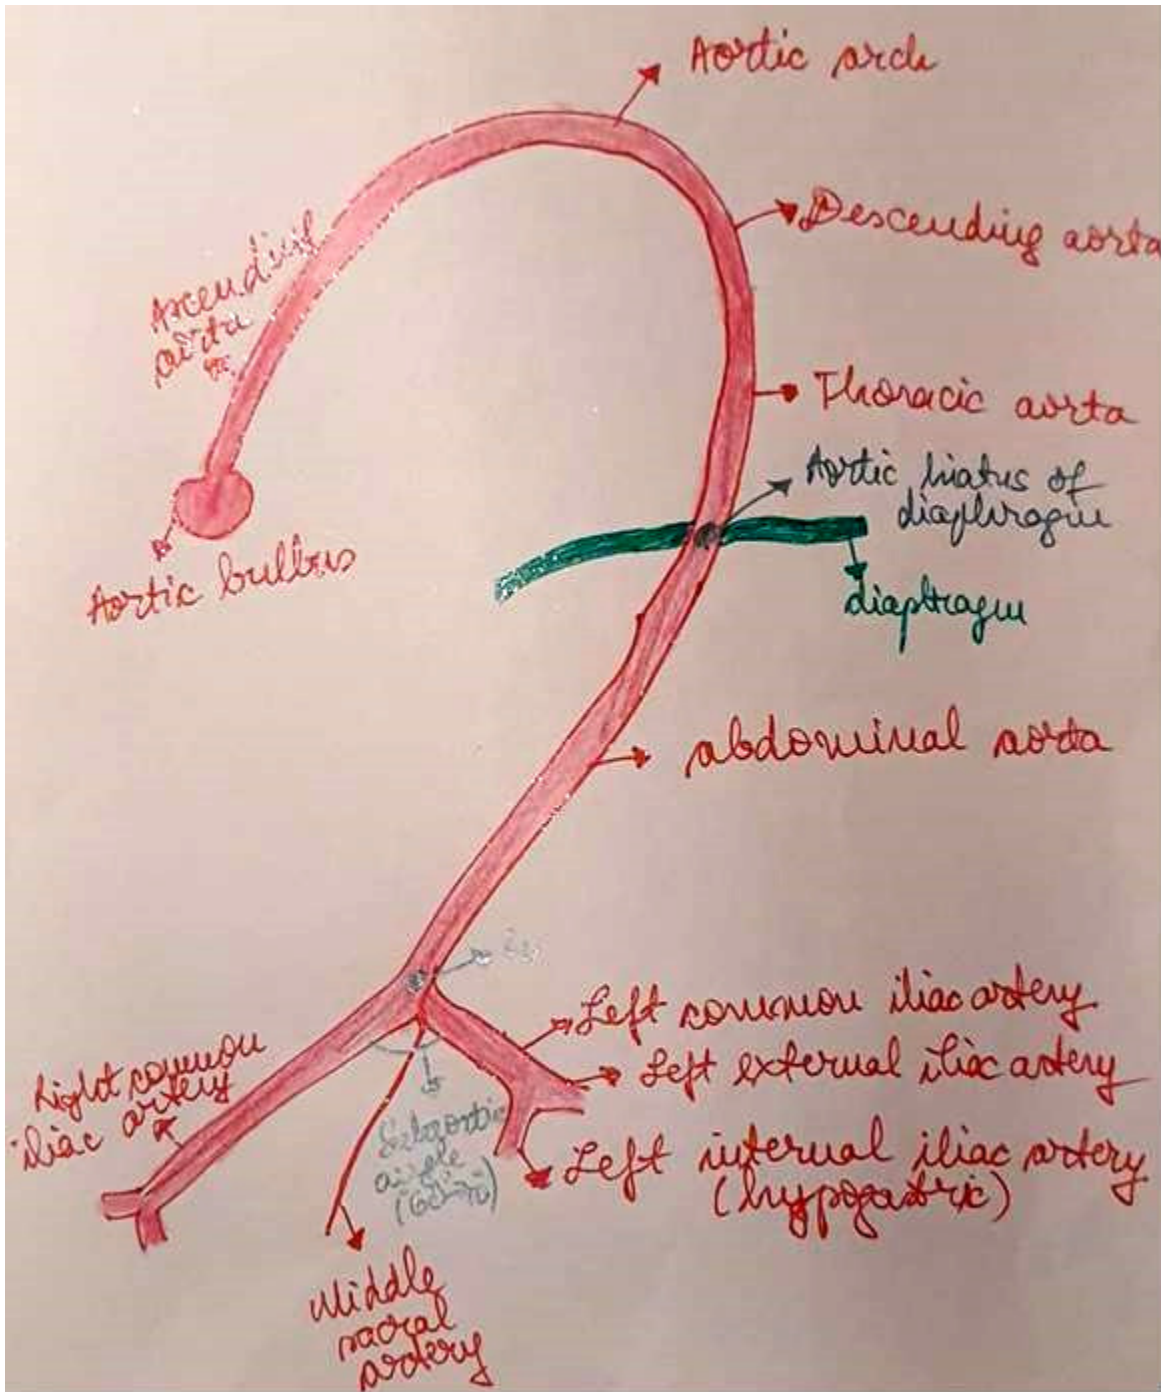 Aortic arch
Descending aorta
Ascending
aorta
Thoracic aorta
Aortic hiatus of
diaphragm
Aortic bulbus
diaphragm
abdominal aorta
Left common iliac artery
Left external iliac artery
Right common
iliac artery
Subaortic
angle
Left internal iliac artery
(hypogastric)
Middle
sacral
artery